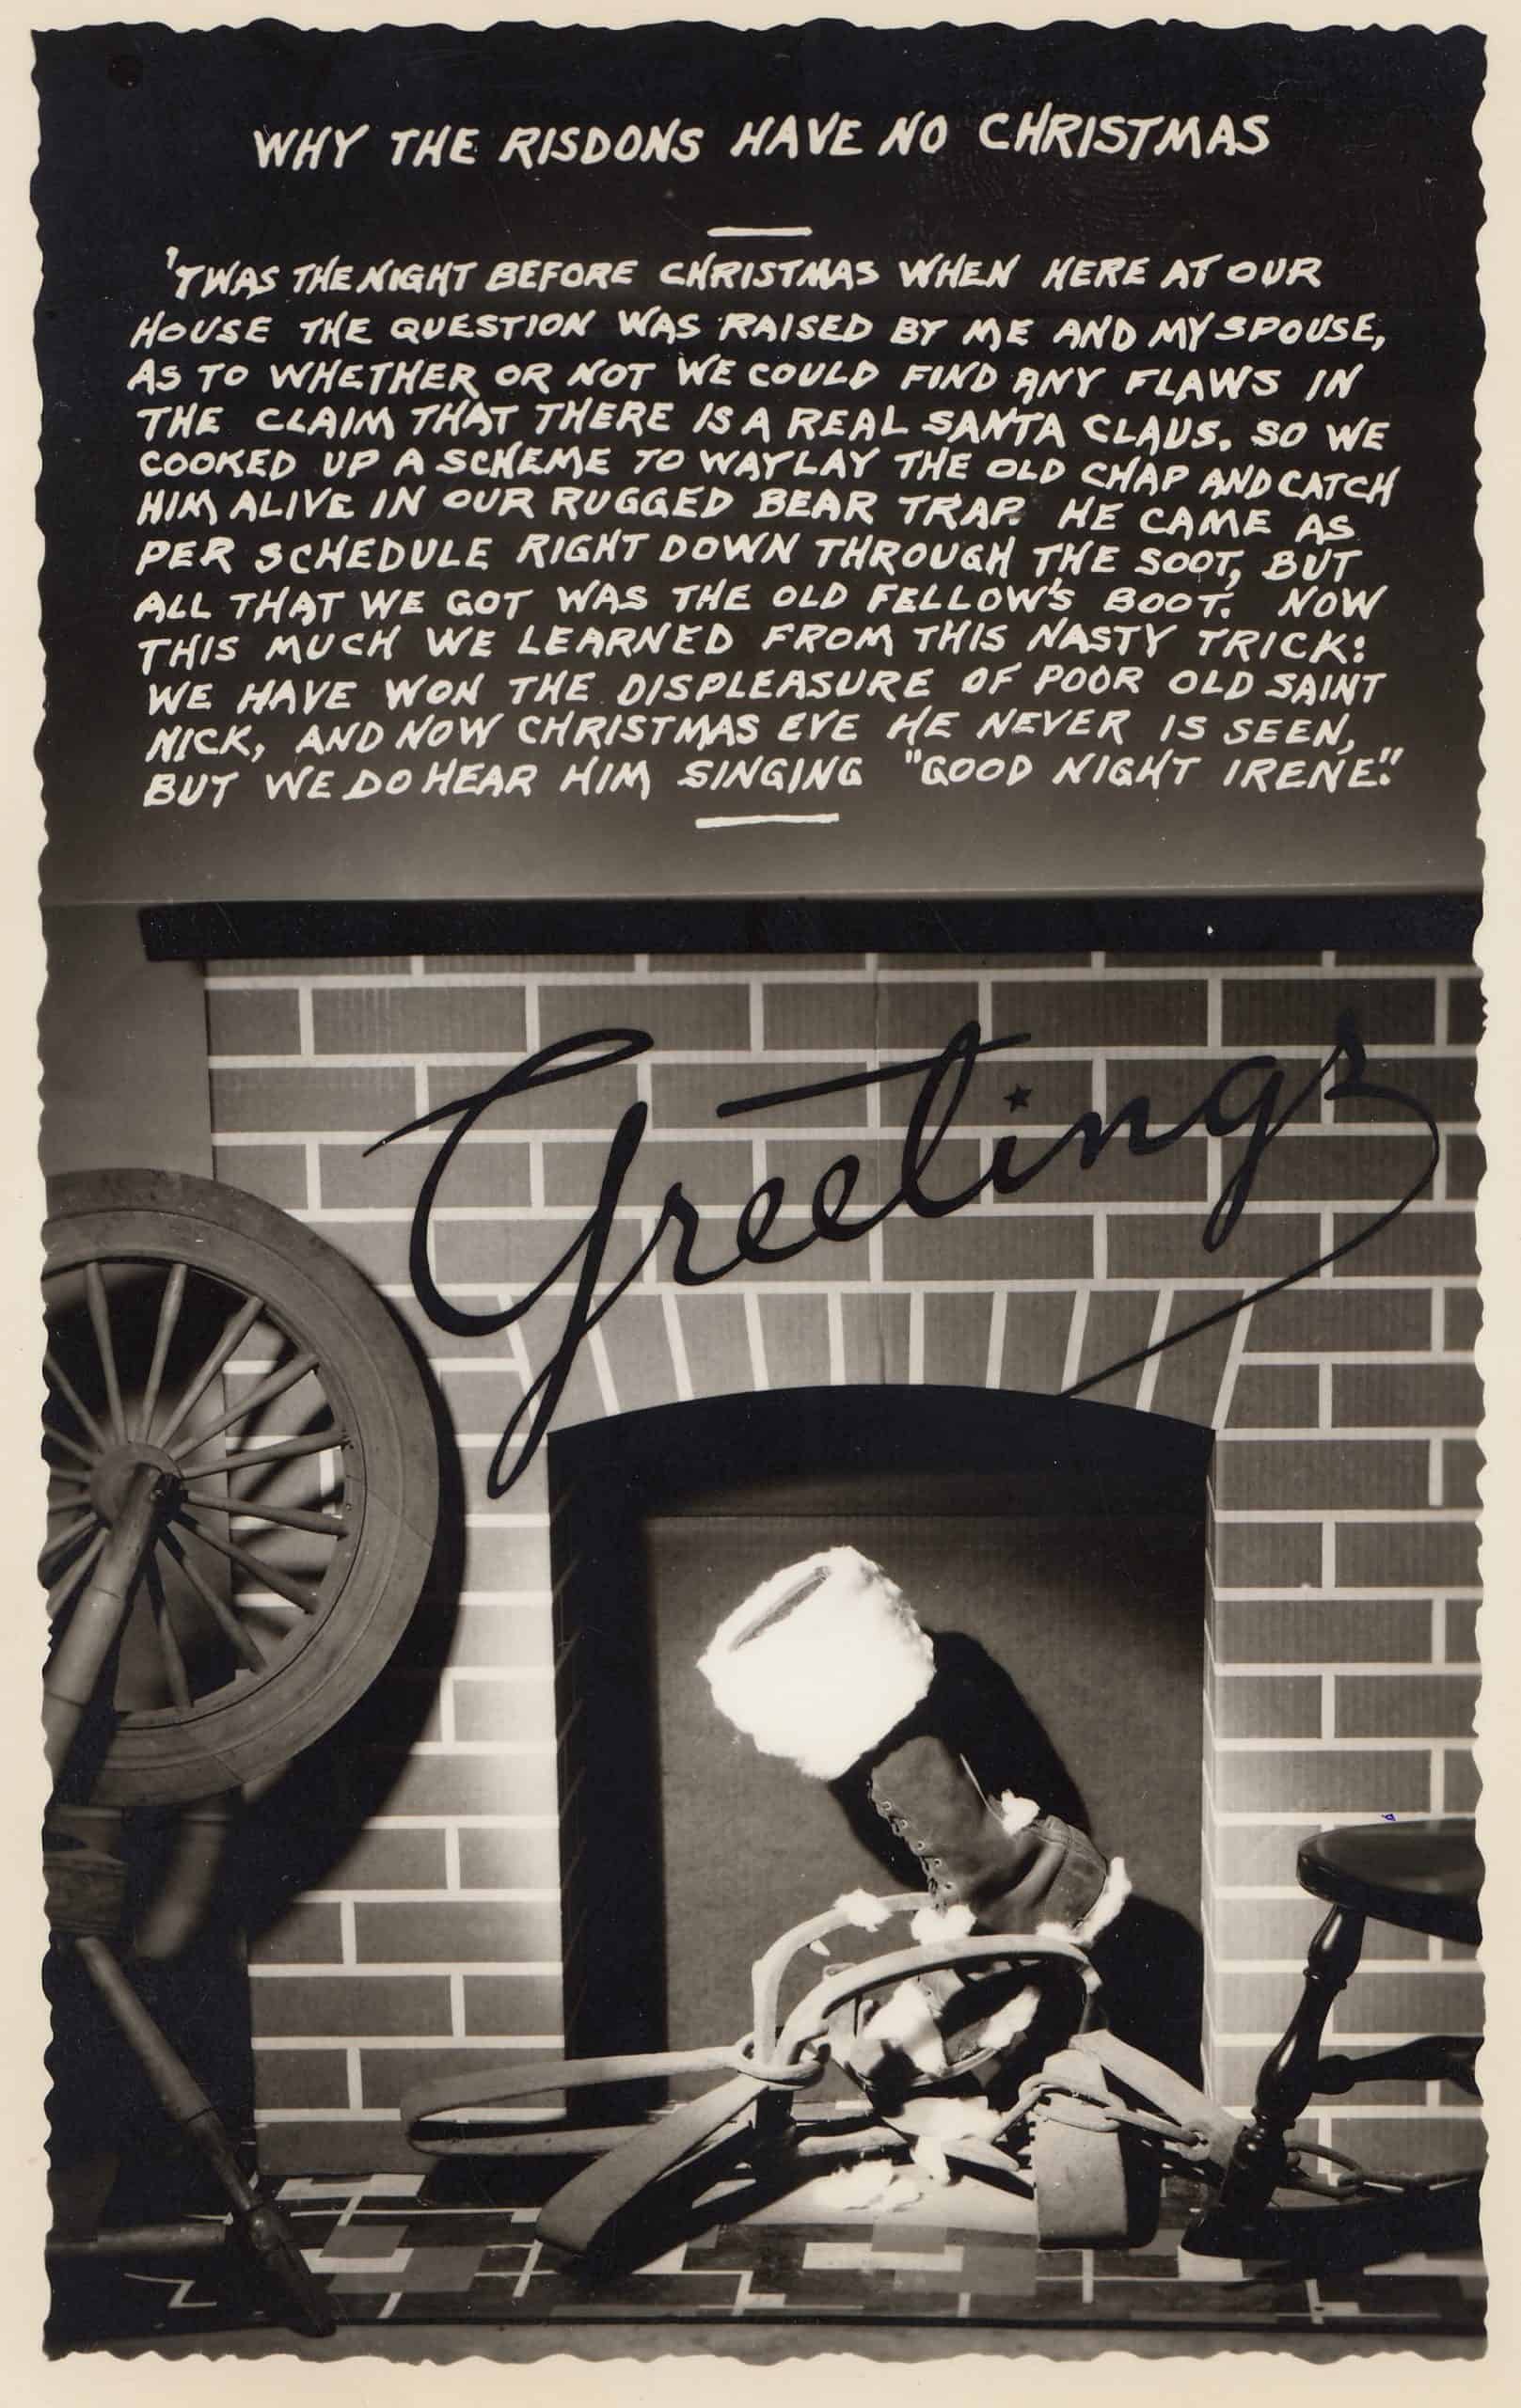 WHY THE RISDONS HAVE NO CHRISTMAS
'TWAS THE NIGHT BEFORE CHRISTMAS WHEN HERE AT OUR
HOUSE THE QUESTION WAS RAISED BY ME AND MY SPOUSE,
AS TO WHETHER OR NOT WE COULD FIND ANY FLAWS IN
THE CLAIM THAT THERE IS A REAL SANTA CLAUS. SO WE
COOKED UP A SCHEME TO WAYLAY THE OLD CHAP AND CATCH
HIM ALIVE IN OUR RUGGED BEAR TRAP. HE CAME AS
PER SCHEDULE RIGHT DOWN THROUGH THE SOOT, BUT
ALL THAT WE GOT WAS THE OLD FELLOW'S BOOT. NOW
THIS MUCH WE LEARNED FROM THIS NASTY TRICK:
WE HAVE WON THE DISPLEASURE OF POOR OLD SAINT
NICK, AND NOW CHRISTMAS EVE HE NEVER IS SEEN,
BUT WE DO HEAR HIM SINGING "GOOD NIGHT IRENE."
Greetings